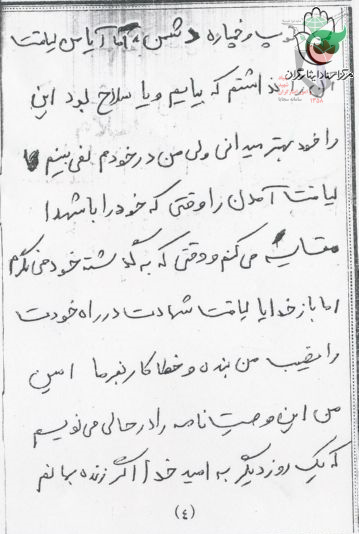 توپ و خمپاره دشمن، اما آیا من لیاقت
آن را نداشتم که بیایم و یا صلاح بود این
را خود بهتر میدانی ولی من در خودم نمی بینم
لیاقت آمدن را وقتی که خود را با شهدا
مقایسه می کنم و وقتی که به گذشته خود می نگرم
اما باز خدایا لیاقت شهادت در راه خودت
را نصیب من بنده و خطا کار بفرما امین
من این وصیت نامه را در حالی می نویسم
که یک روز دیگر به امید خدا اگر زنده بمانم
(٤)